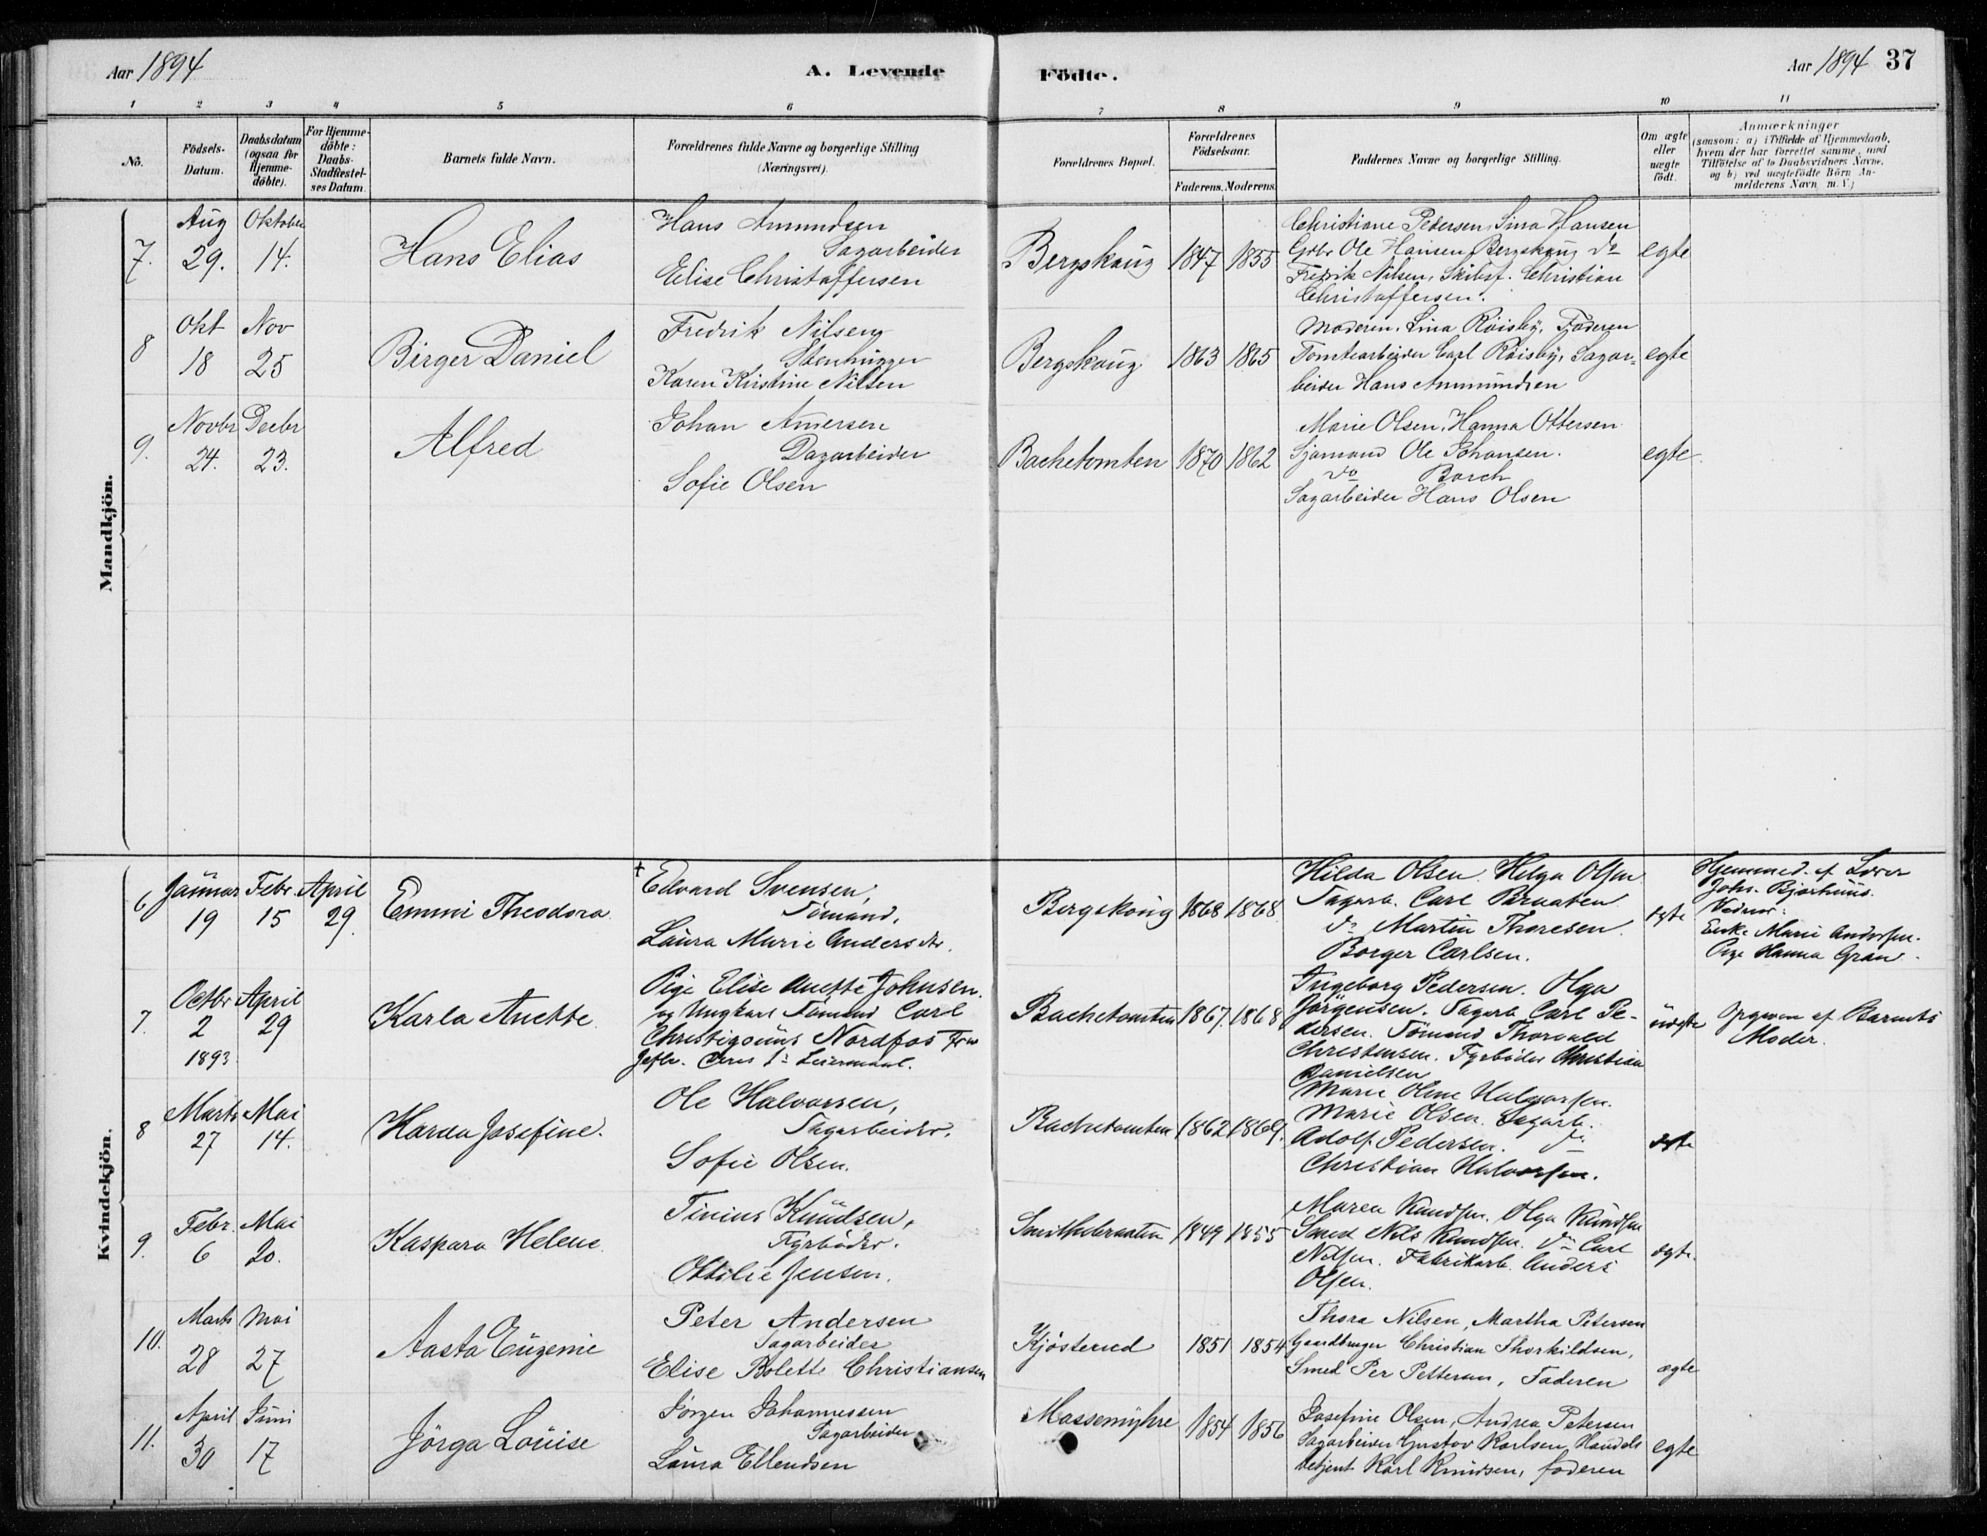 Aar 1894
A. Levende
Födte.
Aar 1894 37
1 2 3 4 5 6 7 8 9 10 11
Nô.
Födsels-
Datum.
Daabsdatum
(ogsaa for
Hjemme-
döbte).
For Hjemme-
döbte:
Daabs-
Stadfæstel-
ses Datum.
Barnets fulde Navn.
Forældrenes fulde Navne og borgerlige Stilling
(Næringsvei).
Forældrenes Bopæl.
Forældrenes
Födselsaar.
Faderens. Moderens.
Faddernes Navne og borgerlige Stilling.
Om ægte
eller
uægte
födt.
Anmærkninger
(saasom: a) i Tilfælde af Hjemmedaab,
hvem der har forrettet samme, med
Tilföielse af to Daabsvidners Navne,
og b) ved uægtefödte Börn An-
melderens Navn m. V.)
Mandkjön.
7.
Aug
29.
Oktober
14.
Hans Elias
Hans Amundsen
Sagarbeider
Elise Christoffersen
Bergskoug 1847 1855
Christiane Pedersen, Sina Hansen
Gdbr Ole Hansen Bergskoug do
Fredrik Nilsen, Skibsf. Christian
Christoffersen.
egte
8
Okt
18
Nov
25
Birger Daniel
Fredrik Nilsen
Stenhugger
Karen Kirstine Nilsen
Bergskoug 1863 1865
Moderen, Lina Röisby, Faderen
Tomtearbeider Carl Röisby, Sagar-
beider Hans Ammundsen
egte
9.
Novbr
24.
Decbr
23.
Alfred
Johan Amersen
Dagarbeider
Sofie Olsen
Bachetomten 1870 1862
Marie Olsen, Hanna Ottersen
Sjömand Ole Johansen.
do Borch
Sagarbeider Hans Olsen
egte
Kvindekjön.
6
Januar
19
Febr.
15
April
29.
Emmi Theodora
Edvard Svensen,
Tömand,
Laura Marie Andersdtr.
Bergskoug 1868 1868
Hilda Olsen. Helga Olsen
Sagarb. Carl Braaten
do Martin Thoresen.
Borger Carlsen.
egte
Hjemmed. af Lærer
Johs. Bjarhuus.
Vidner:
Enke Marie Andersen.
Pige Hanna Gran.
7.
Octbr
2
1893
April
29
Karla Anette
Pige Elise Anette Johnsen.
og Ungkarl Tömand Carl
Christigouns Nordfos Fra
Jefln. Deres 1ste Leiermaal.
Bachetomten 1867. 1868
Ingeborg Pedersen. Olga
Jörgensen. Sagarb. Carl Pe-
dersen. Tömand Thorvald
Christensen. Fyrböder Christian
Danielsen
uægte
Opgiven af Barnets
Moder.
8
Marts
27
Mai
14.
Harda Josefine.
Ole Halvorsen,
Sagarbeider.
Sofie Olsen.
Bachetomten 1862 1869.
Marie Oline Halvorsen.
Marie Olsen. Sagarb.
Adolf Pedersen. do
Christian Halvorsen.
egte
9.
Febr.
6
Mai
20.
Kaspara Helene
Tinius Knudsen,
Fyrböder.
Ottilie Jensen.
Smithebraaten 1849 1855
Maren Knudsen. Olga Knudsen
Smed Nils Knudsen. do Carl
Nilsen. Fabrikarb. Anders
Olsen.
egte.
10.
Marts
28
Mai
27
Aasta Eugenie
Peter Andersen
Sagarbeider
Elise Bolette Christiansen
Kjösterud 1851 1854
Thora Nilsen, Martha Petersen
Gaardbruger Christian Thorkildsen,
Smed Per Pettersen, Faderen
ægte
11.
April
30
Juni
17
Jörga Louise
Jörgen Johannessen
Sagarbeider
Laura Ellendsen
Massemyhre 1854 1856
Josefine Olsen, Andrea Petersen
Sagarbeider Gustav Karlsen, Handels
betjent Karl Knudsen, faderen
egte